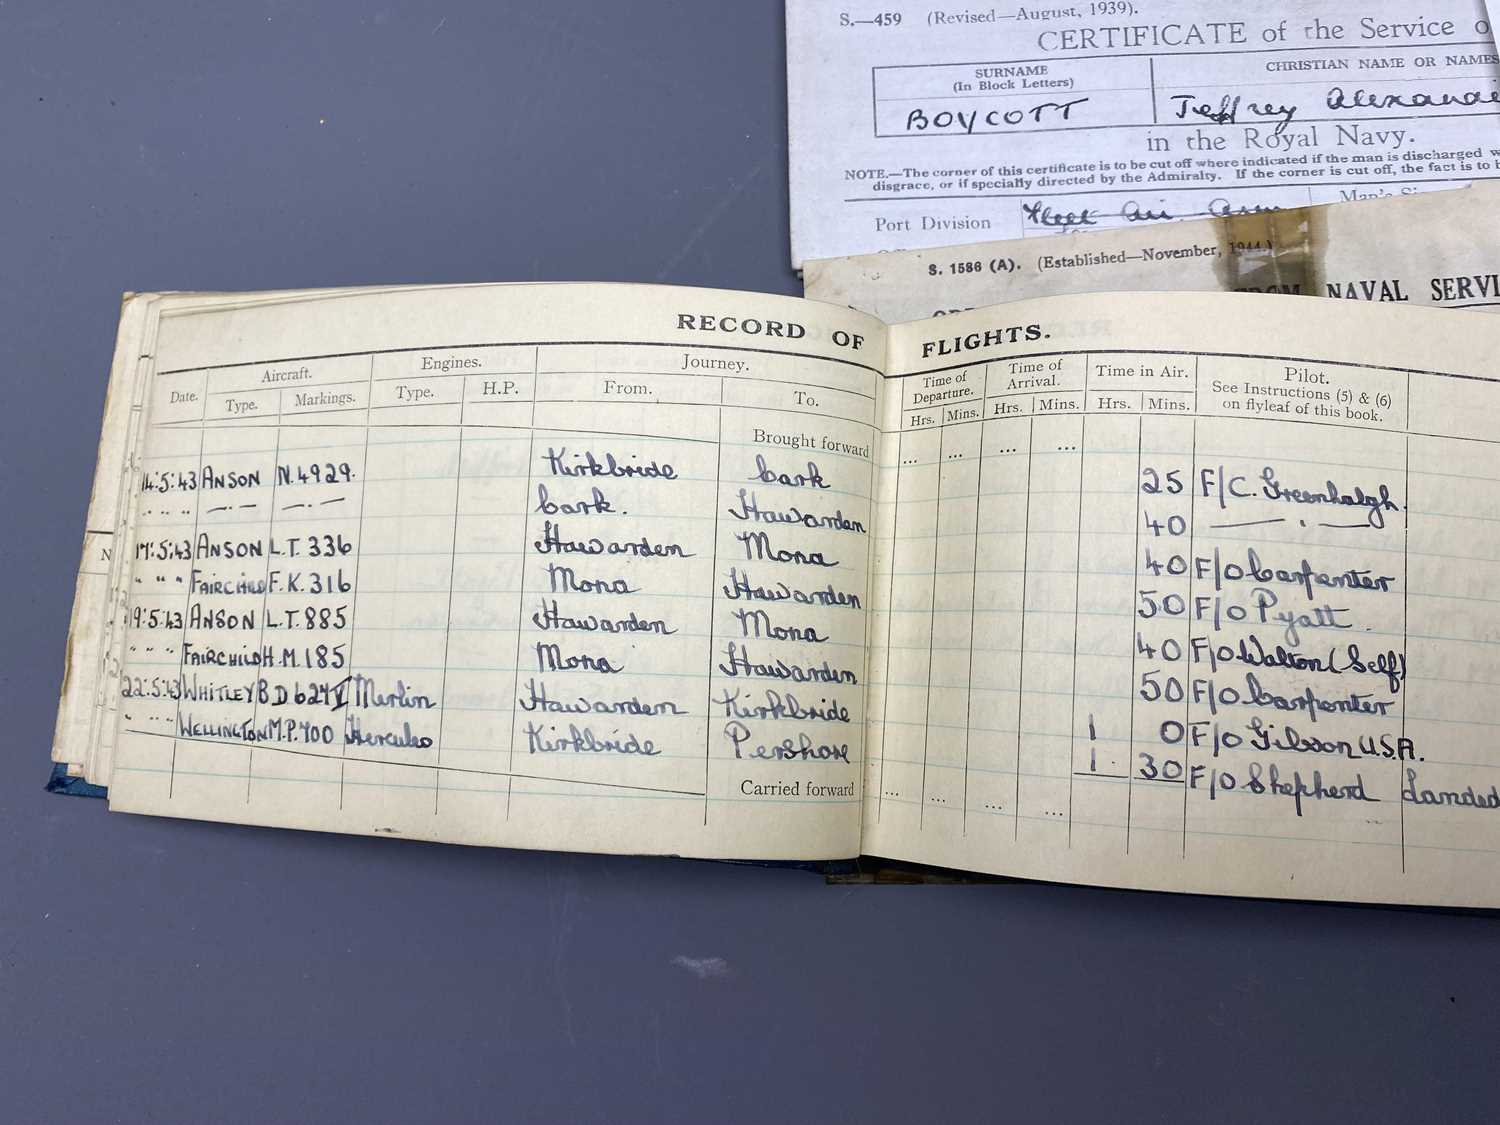 S.—459 (Revised—August, 1939).
CERTIFICATE of the Service o
SURNAME
(In Block Letters)
CHRISTIAN NAME OR NAMES
BOYCOTT
Jeffrey Alexande
in the Royal Navy.
NOTE.—The corner of this certificate is to be cut off where indicated if the man is discharged w
disgrace, or if specially directed by the Admiralty. If the corner is cut off, the fact is to b
Port Division Fleet Air Arm
S. 1586 (A). (Established—November, 1944.)
FROM NAVAL SERVI
RECORD OF FLIGHTS.
Date. Aircraft. Engines. Journey. Time of Departure. Time of Arrival. Time in Air. Pilot.
See Instructions (5) & (6)
on flyleaf of this book.
Type. Markings. Type. H.P. From. To. Hrs. Mins. Hrs. Mins. Hrs. Mins.
Brought forward ... ... ... ...
14:5:43 ANSON N.4929. Kirkbride Cark 25 F/C. Greenhalgh.
" " " —·— —·— Cark. Hawarden 40 —— · ——
17:5:43 ANSON L.T. 336 Hawarden Mona 40 F/O Carpenter
" " " FAIRCHILD F.K. 316 Mona Hawarden 50 F/O Pyatt.
19:5:43 ANSON L.T. 885 Hawarden Mona 40 F/O Walton (Self)
" " " FAIRCHILD H.M. 185 Mona Hawarden 50 F/O Carpenter
22:5:43 WHITLEY B D 627 V Merlin Hawarden Kirkbride 1 0 F/O Gibson U.S.A.
" " " WELLINGTON M.P. 700 Hercules Kirkbride Pershore 1. 30 F/O Shepherd Landed
Carried forward ... ... ... ...
N